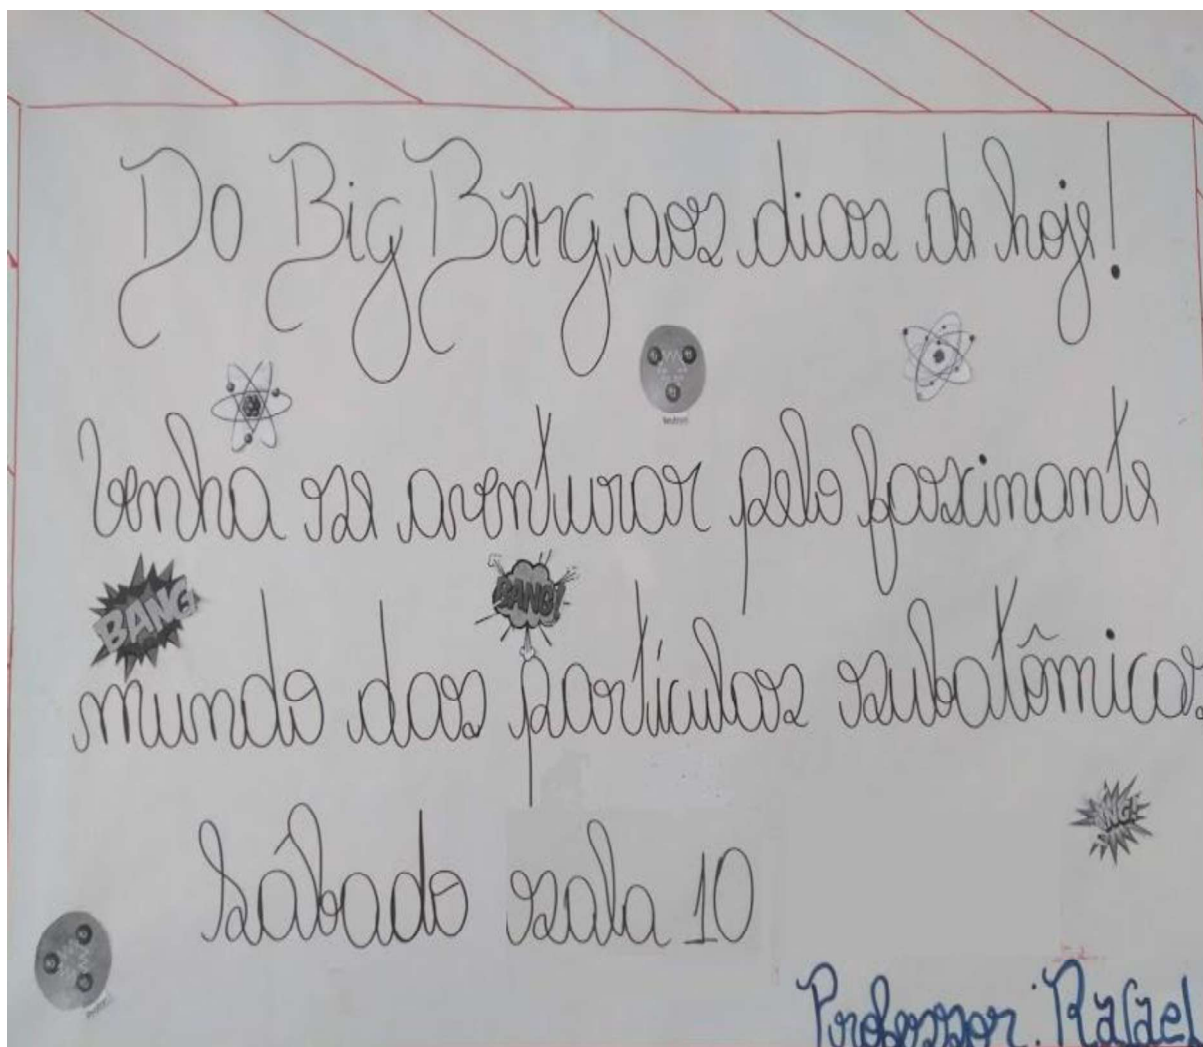 Do Big Bang, aos dias de hoje!
Venha se aventurar pelo fascinante
BANG
BANG!
mundo das partículas subatômicas
Sábado sala 10
Professor: Rafael